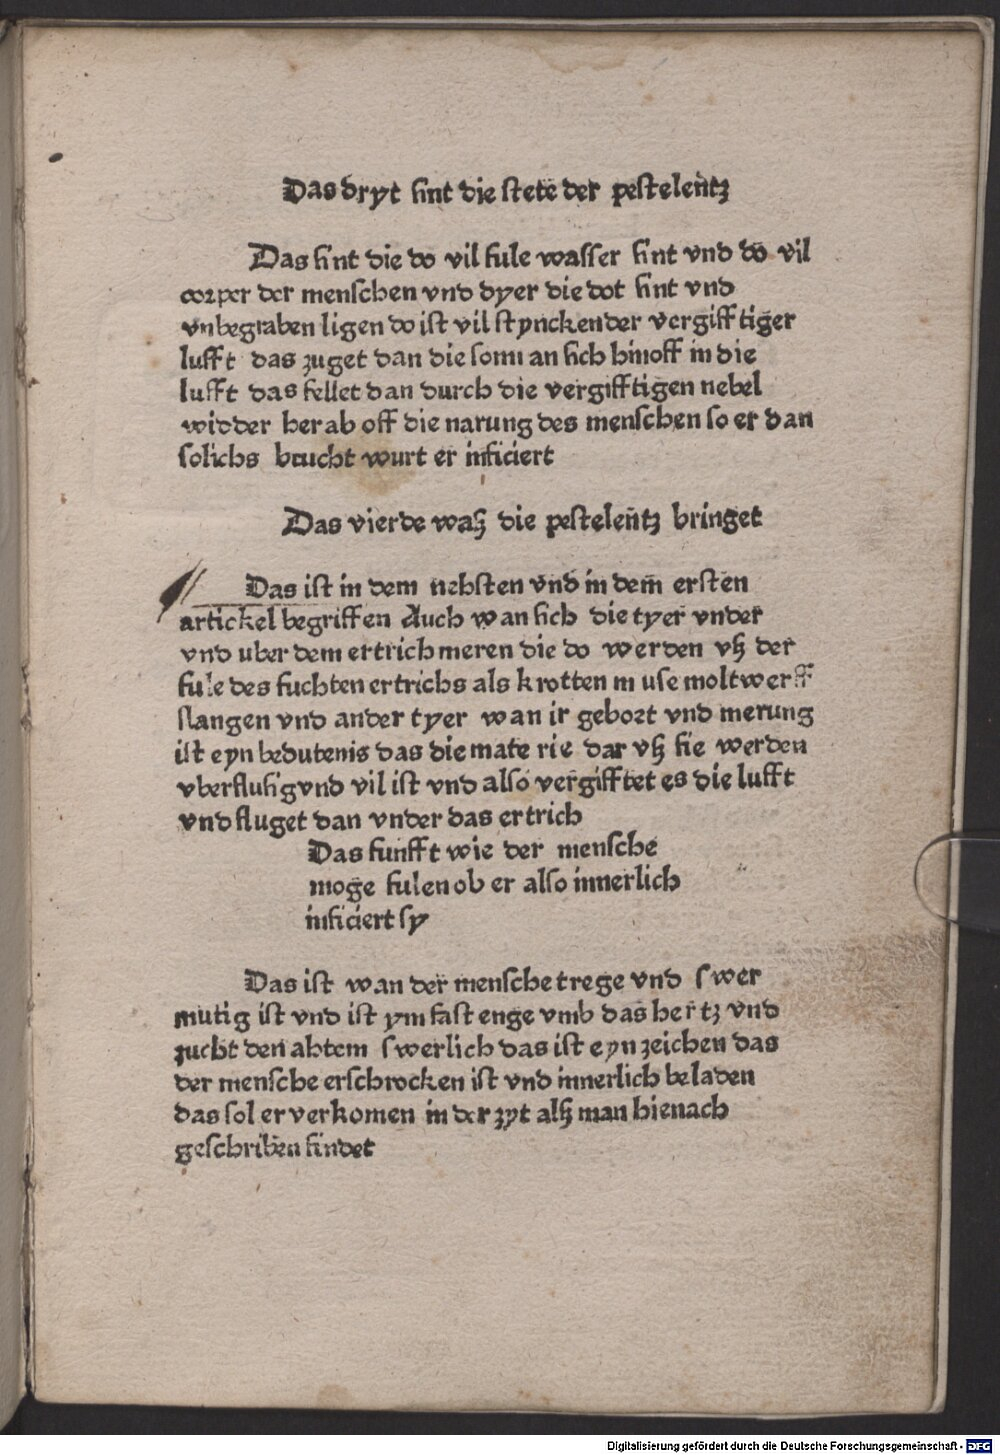 Das dryt sint die stete der pestelentz
Das sint die do vil fule wasser sint vnd do vil
corper der menschen vnd dyer die dot sint vnd
vnbegraben ligen do ist vil stynckender vergifftiger
lufft das zuget dan die sonn an sich hinoff in die
lufft das fellet dan durch die vergifftigen nebel
widder herab off die narung des menschen so er dan
solichs brucht wurt er inficiert
Das vierde waß die pestelentz bringet
Das ist in dem nehsten vnd in dem ersten
artickel begriffen Auch wan sich die tyer vnder
vnd uber dem ertrich meren die do werden vß der
fule des fuchten ertrichs als krotten muse moltwerff
slangen vnd ander tyer wan ir gebort vnd merung
ist eyn bedutenis das die materie dar vß sie werden
vberflusig vnd vil ist vnd also vergifftet es die lufft
vnd fluget dan vnder das ertrich
Das funfft wie der mensche
moge fulen ob er also innerlich
inficiert sy
Das ist wan der mensche trege vnd swer
mutig ist vnd ist ym fast enge vmb das hertz vnd
zucht den ahtem swerlich das ist eyn zeichen das
der mensche erschrocken ist vnd innerlich beladen
das sol er verkomen in der zyt alß man hienach
geschriben findet
Digitalisierung gefördert durch die Deutsche Forschungsgemeinschaft - DFG